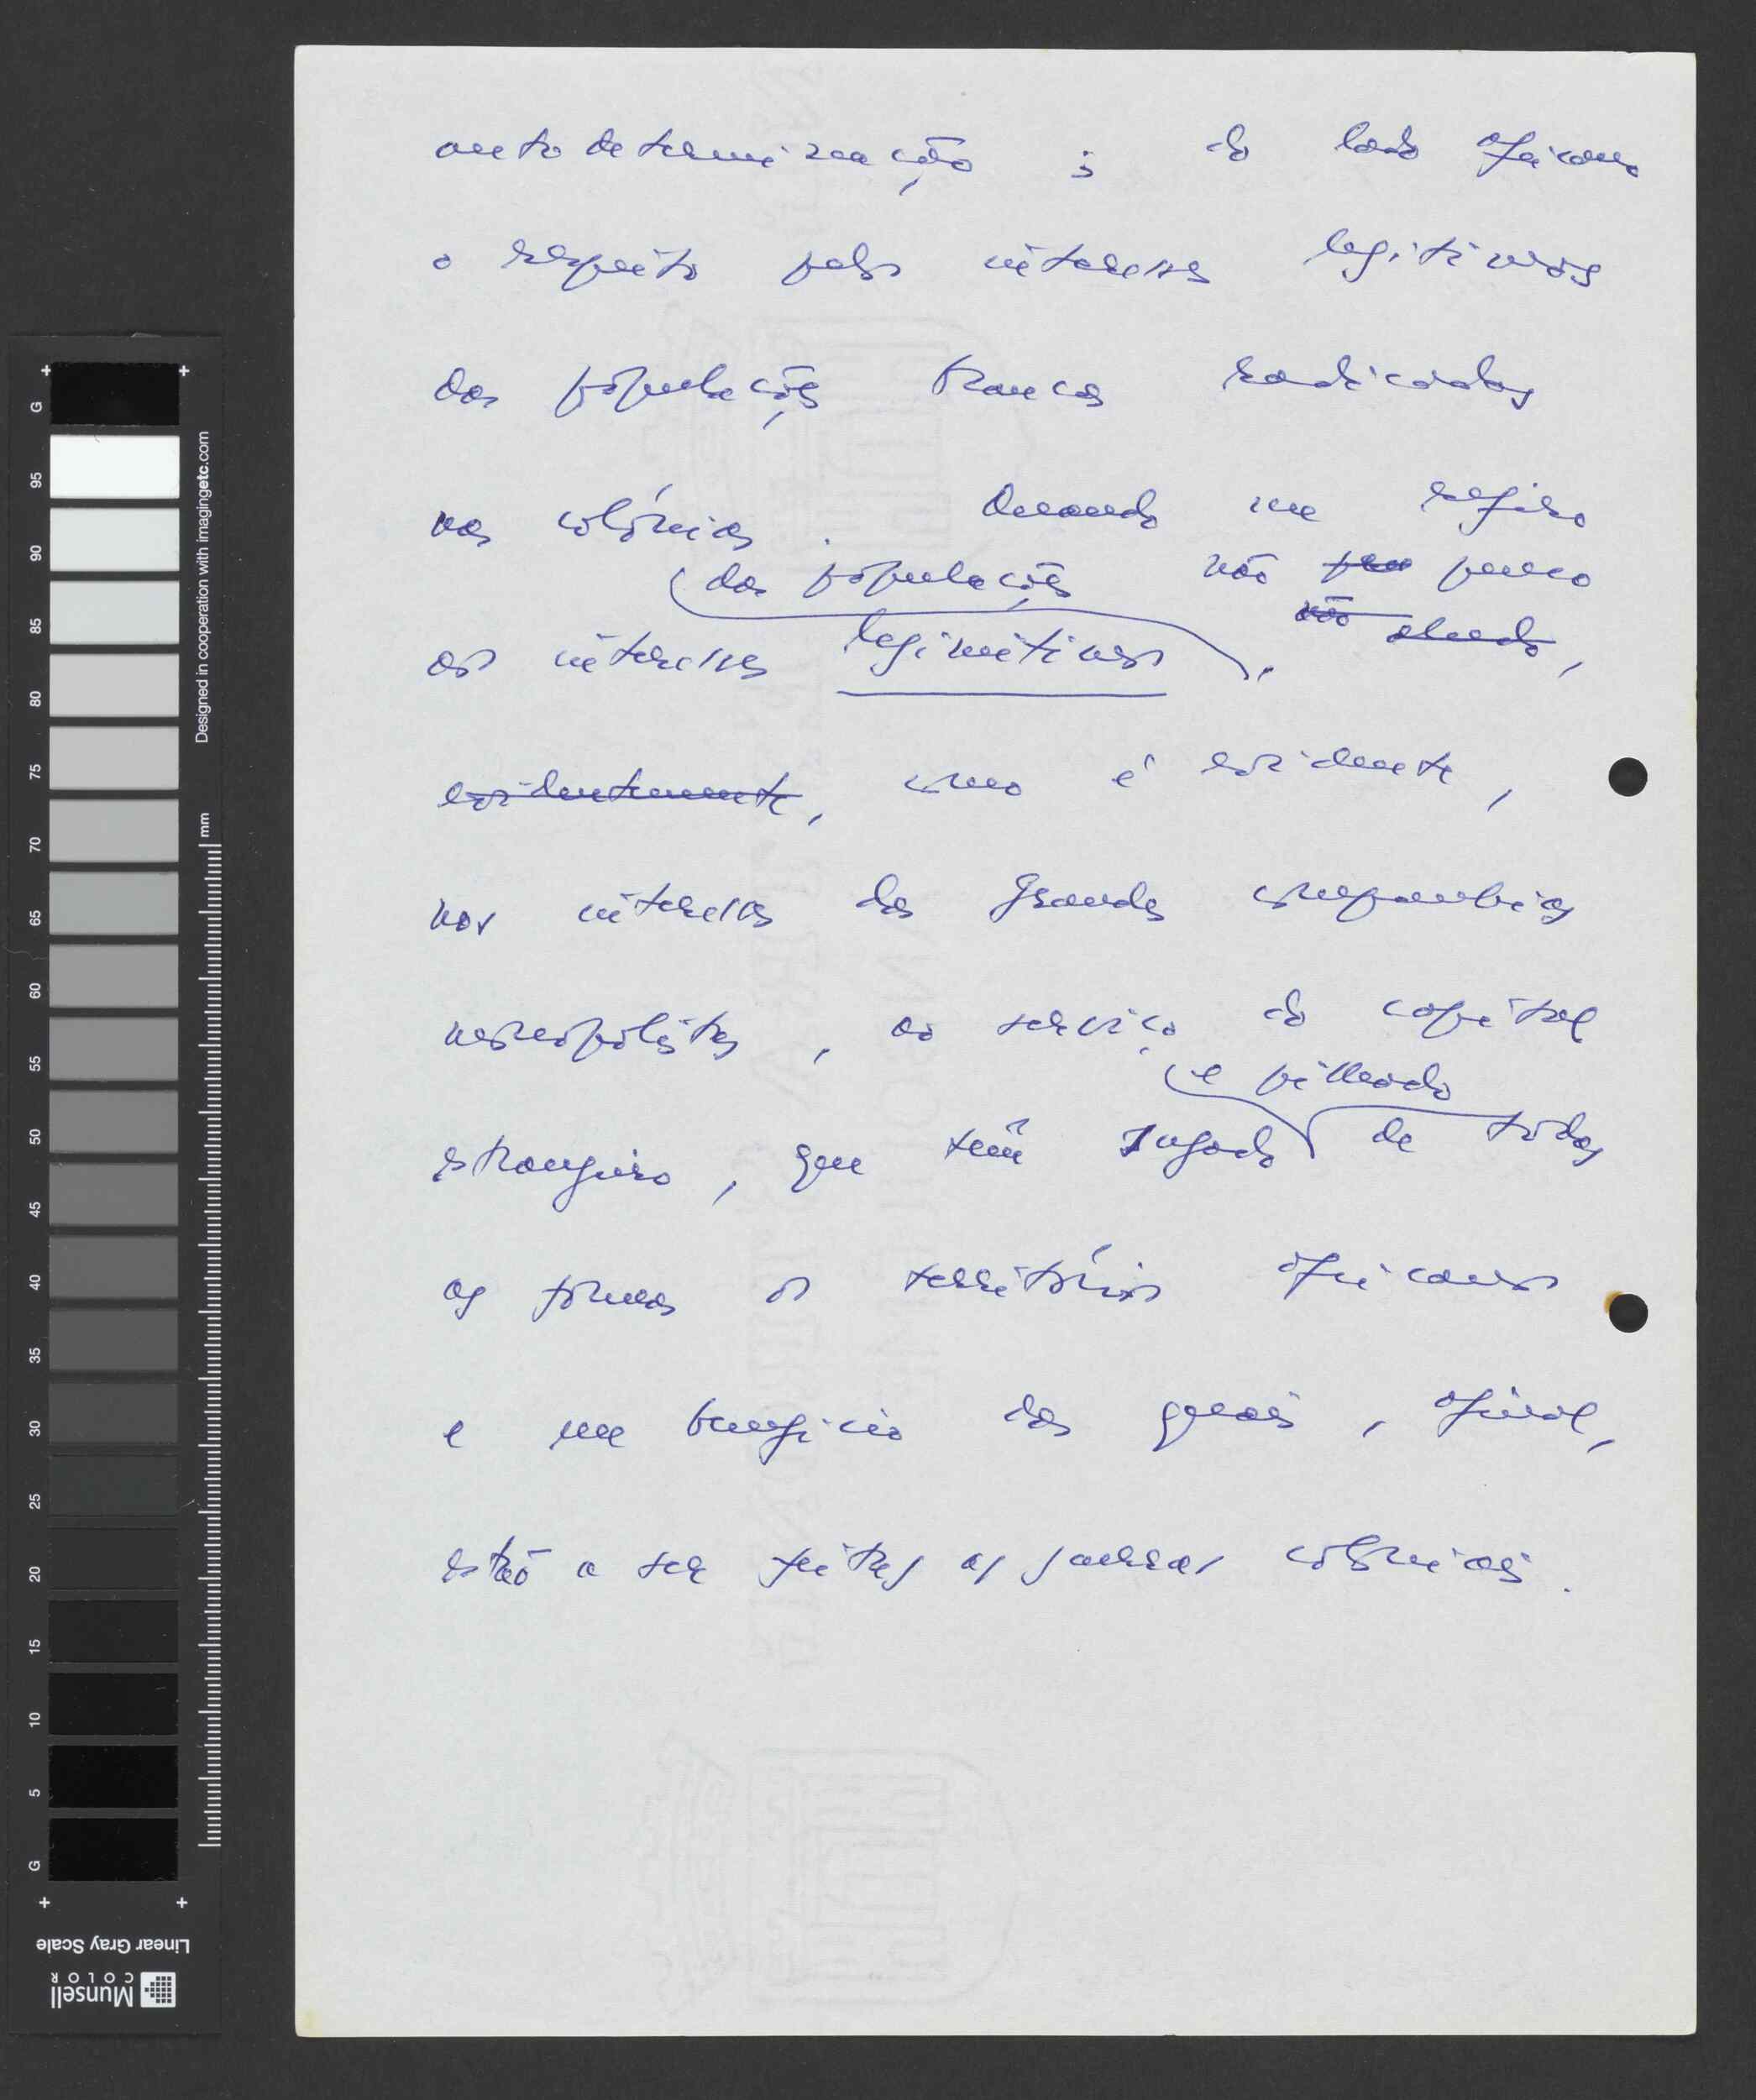 autodeterminação ; do lado africano
o respeito pelos interesses legitimos
das populações brancas radicadas
nas colónias . Quando me refiro
das populações não penso
aos interesses legimitimos , não aludo ,
evidentemente , como é evidente ,
nos interesses das grandes companhias
monopolistas , ao serviço do capital
e pilhado
estrangeiro , que têm sugado de todas
as formas os territórios africanos
e em benefício das quais , afinal ,
estão a ser feitas as guerras coloniais .
Designed in cooperation with imagingetc.com
mm
G 95 90 85 80 75 70 65 60 55 50 45 40 35 30 25 20 15 10 5 G
Linear Gray Scale
Munsell
COLOR